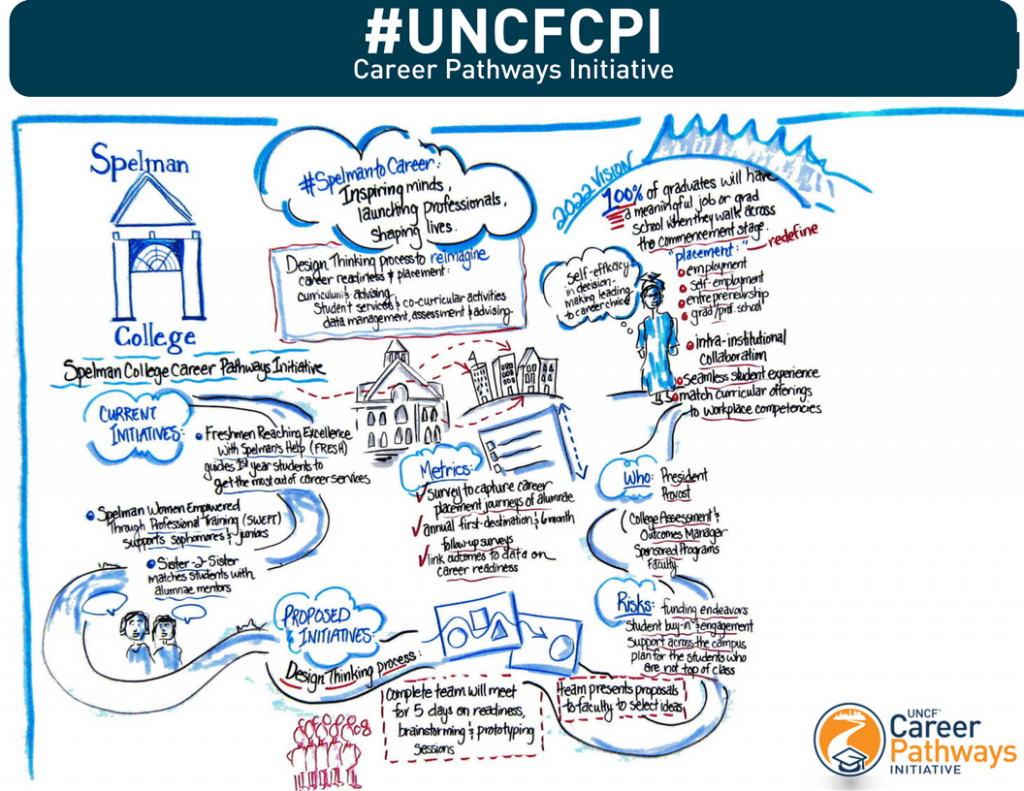 #UNCFCPI
Career Pathways Initiative
Spelman
College
Spelman College Career Pathways Initiative
#SpelmantoCareer:
Inspiring minds,
launching professionals,
shaping lives.
Design Thinking process to reimagine
career readiness & placement:
curriculum & advising
Student services & co-curricular activities
data management, assessment & advising
2022 VISION
100% of graduates will have
a meaningful job or grad
school when they walk across
the commencement stage.
redefine
"placement:"
employment
self-employment
entrepreneurship
grad/prof. school
self-efficacy
in decision-
making leading
to career choice
intra-institutional
collaboration
seamless student experience
match curricular offerings
to workplace competencies
CURRENT
INITIATIVES:
Freshmen Reaching Excellence
With Spelman's Help (FRESH)
guides 1st year students to
get the most out of career services
Spelman Women Empowered
Through Professional Training (SWEPT)
supports sophomores & juniors
Sister-2-Sister
matches students with
alumnae mentors
Metrics:
survey to capture career
placement journeys of alumnae
annual first-destination & 6 month
follow-up surveys
link outcomes to data on
career readiness
Who: President
Provost
College Assessment &
Outcomes Manager
Sponsored Programs
Faculty
Risks: funding endeavors
Student buy-in & engagement
support across the campus
plan for the students who
are not top of class
PROPOSED
INITIATIVES:
Design Thinking process:
Complete team will meet
for 5 days on readiness,
brainstorming & prototyping
sessions
team presents proposals
to faculty to select ideas
UNCF®
Career
Pathways
INITIATIVE